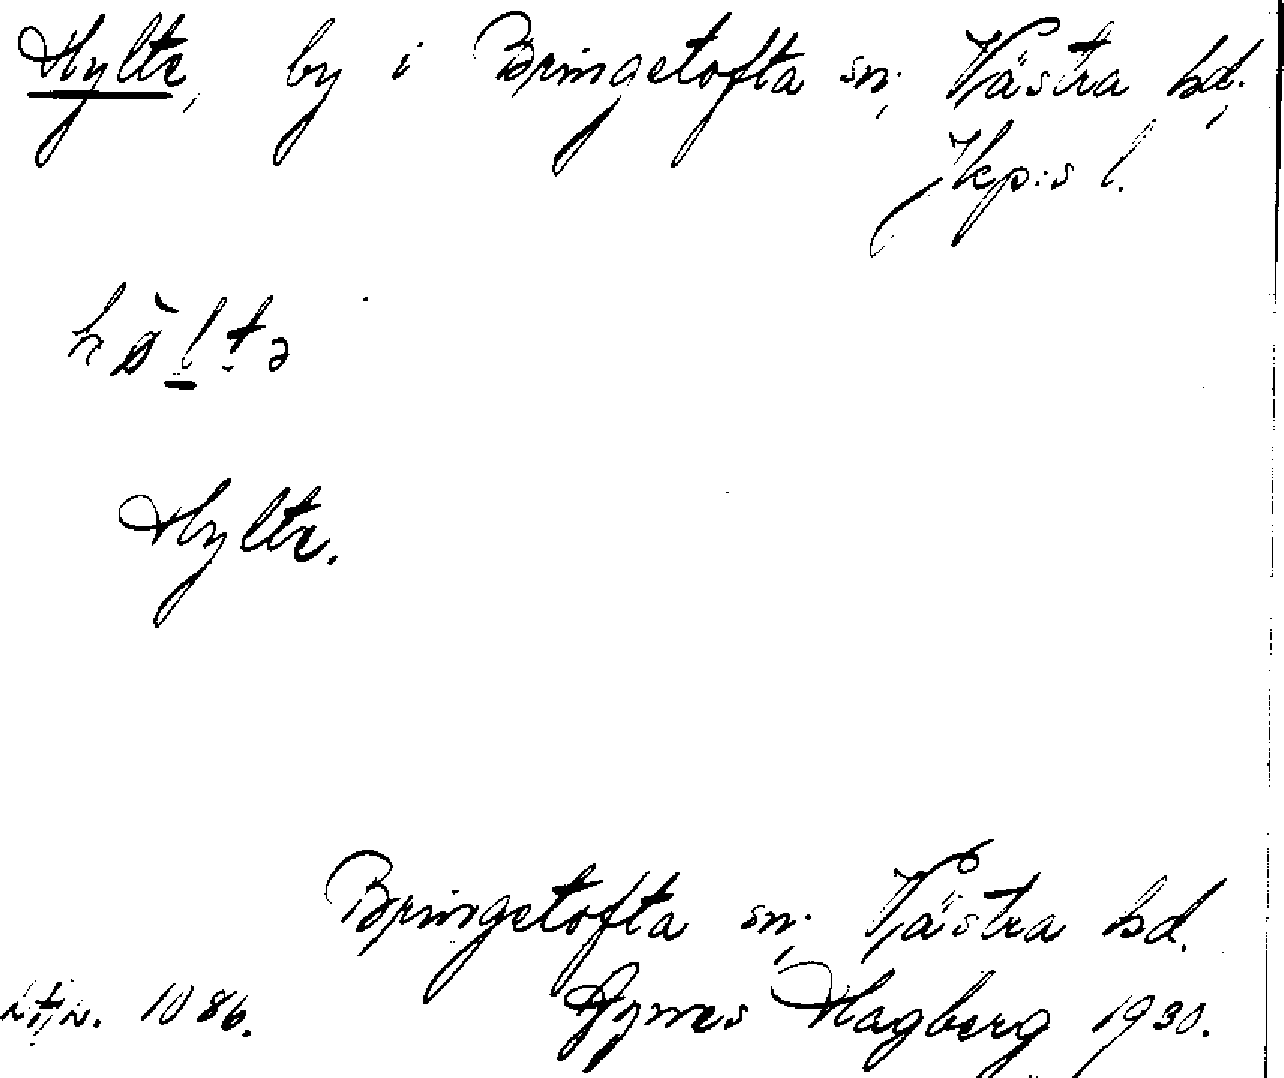 Hylte, by i Bringetofta sn; Västra hd;
Jkp:s l.
Hylte.
Bringetofta sn; Västra hd.
1086. Agnes Hagberg 1930.